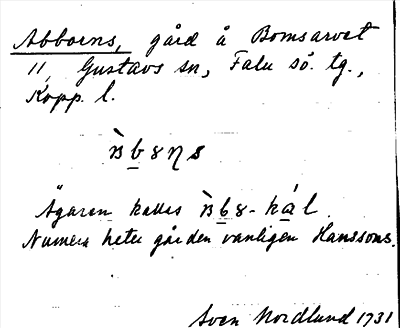 Abboens, gård å Bomsarvet
11, Gustavs sn, Falu sö. tg.,
Kopp. l.
Ägaren kallas
Numera heter gården vanligen Hanssons.
Sven Nordlund 1931